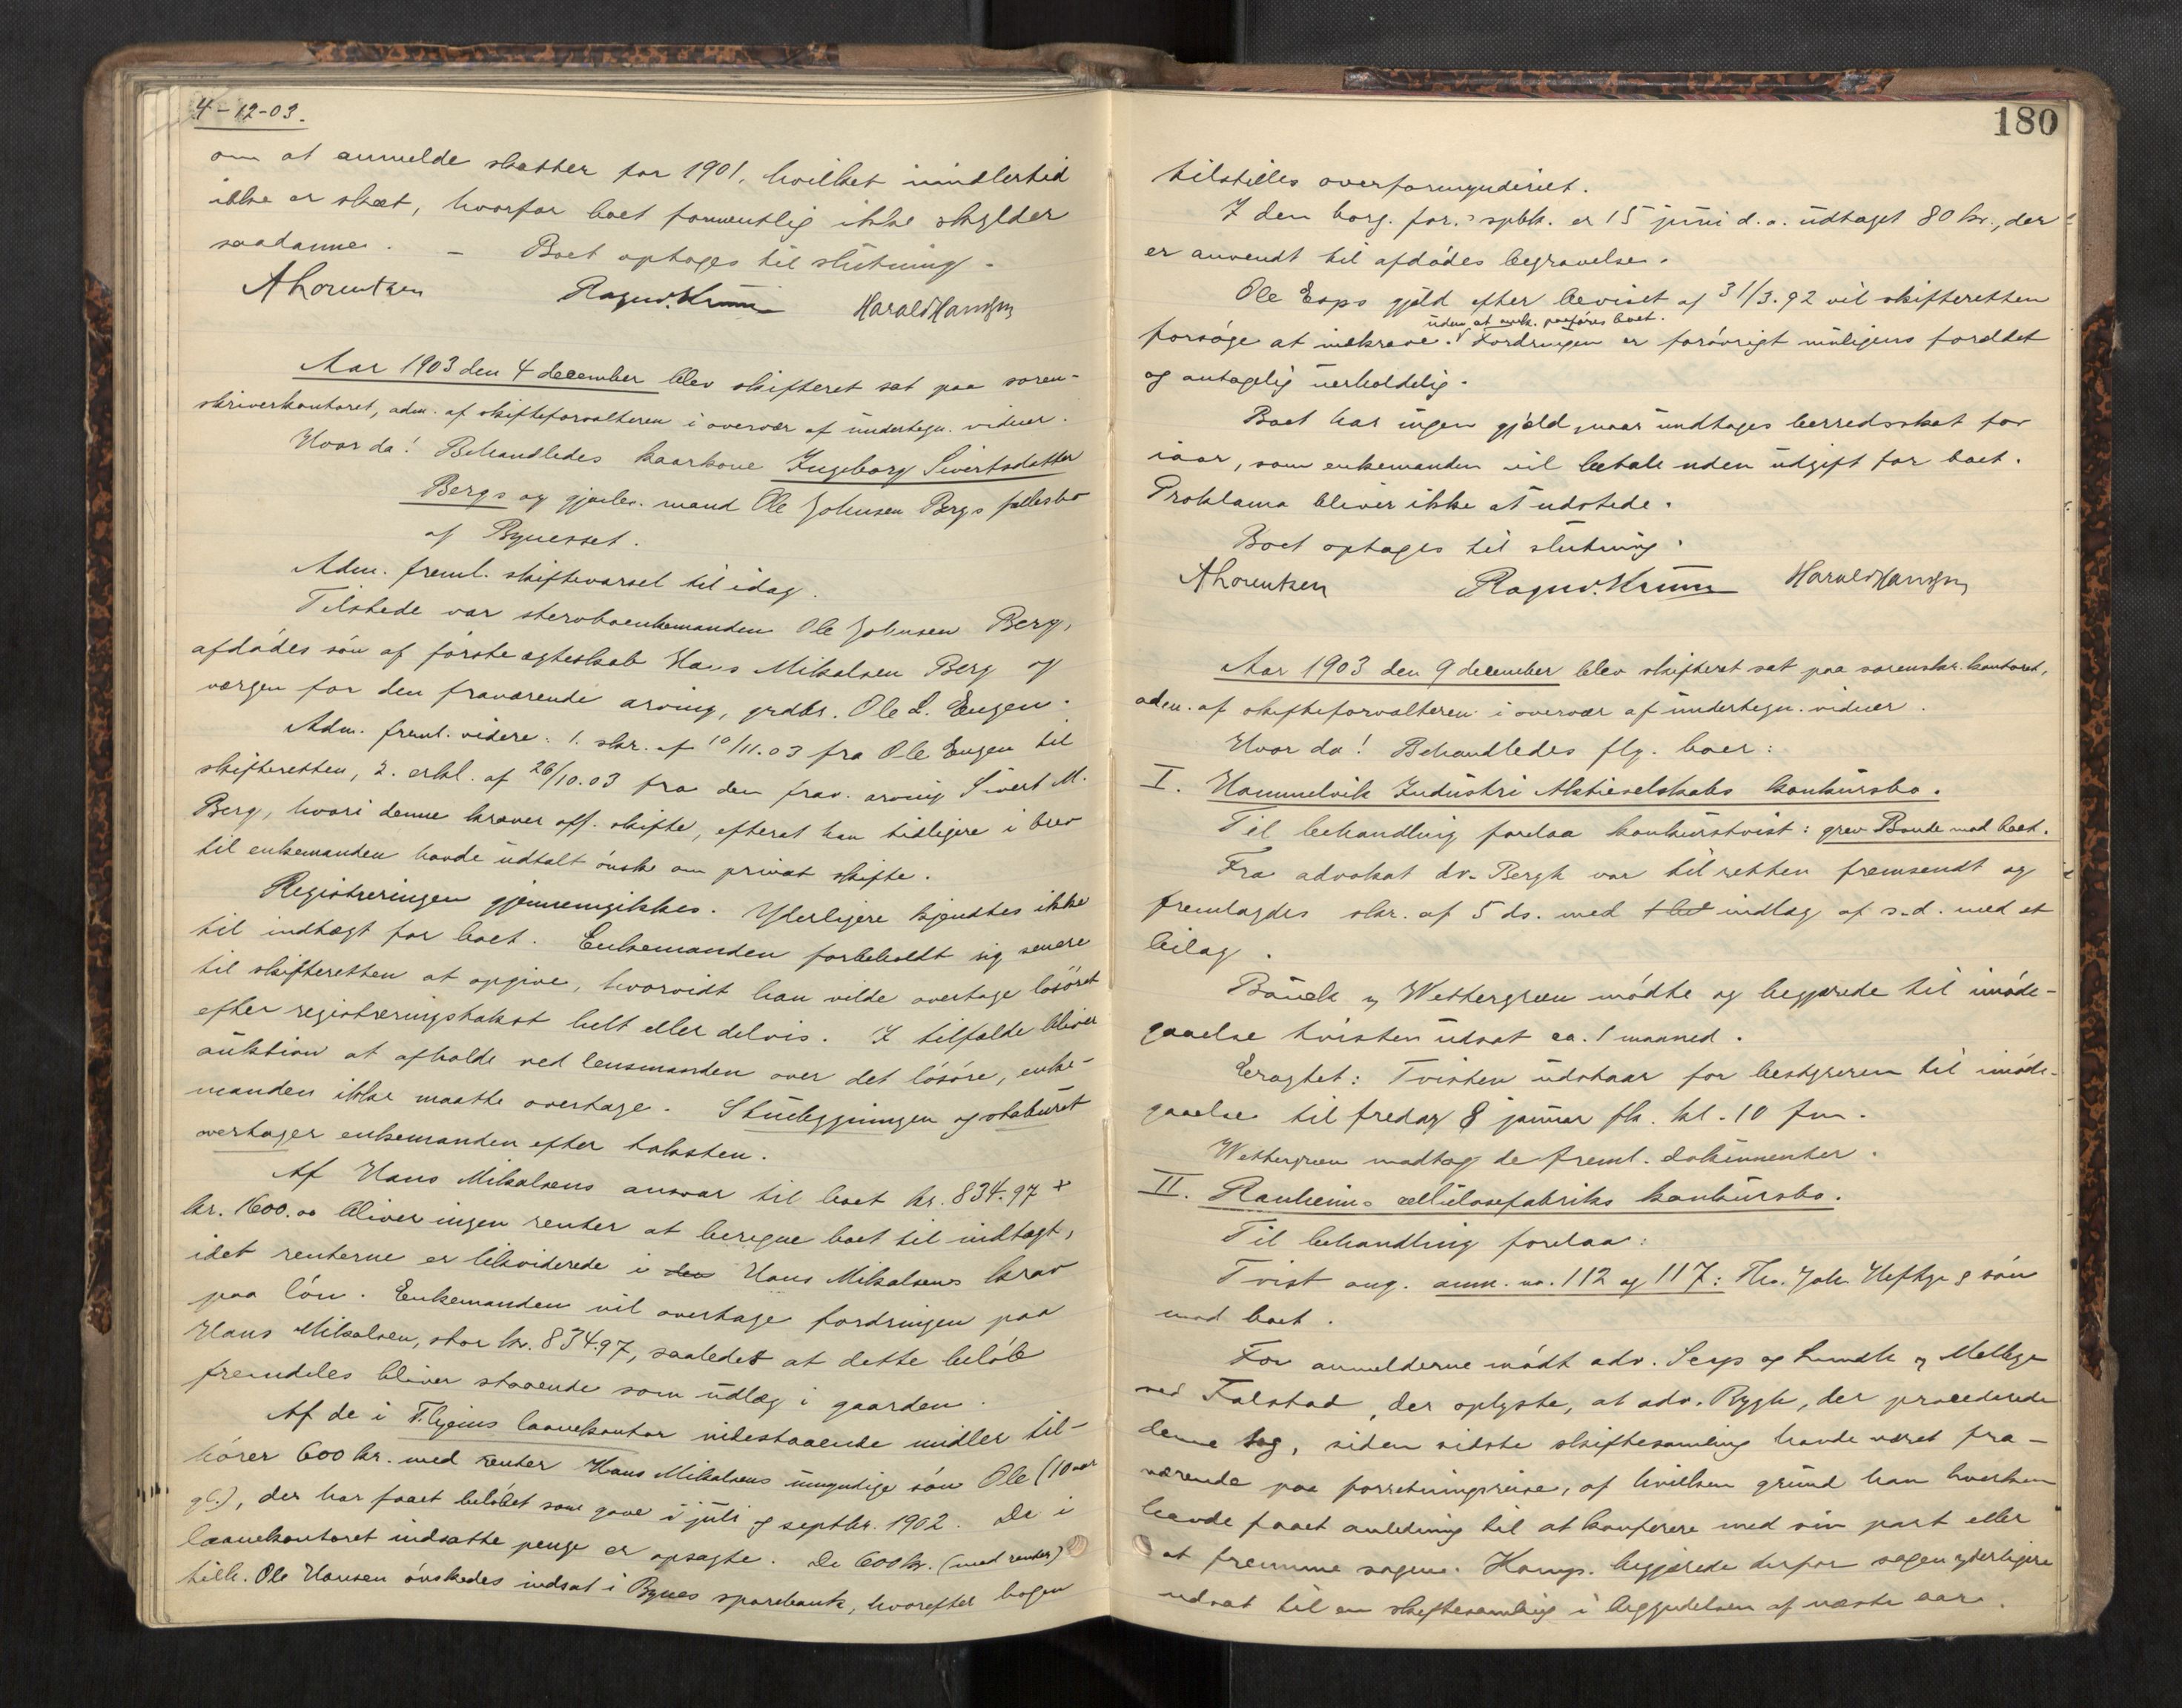 4-12-03.
om at anmelde skatter for 1901, hvilket imidlertid
ikke er skeet, hvorfor boet formentlig ikke skylder
saadanne. - Boet optages til slutning.
A Lorentzen Ragnv. Harald Hansen
Aar 1903 den 4 december blev skifteret sat paa soren-
skriverkontoret, adm. af skifteforvalteren i overvær af undertegn. vidner.
Hvor da! Behandledes kaarkone Ingeborg Sivertsdatter
Bergs og gjenlev. mand Ole Johnsen Bergs fællesbo
af Bynesset.
Adm. freml. skiftevarsel til idag.
Tilstede var stervboenkemanden Ole Johnsen Berg,
afdødes søn af første ægteskab Hans Mikalsen Berg og
værgen for den fraværende arving, grdbr. Ole L. Eugen.
Adm. freml. videre: 1. skr. af 10/11.03 fra Ole Eugen til
skifteretten, 2. erkl. af 26/10.03 fra den frav. arving Sivert M.
Berg, hvori denne kræver off. skifte, efterat han tidligere i brev
til enkemanden havde udtalt ønske om privat skifte.
Registreringen gjennemgikkes. Yderligere kjendtes ikke
til indtægt for boet. Enkemanden forbeholdt sig senere
til skifteretten at opgive, hvorvidt han vilde overtage løsøret
efter registreringstakst helt eller delvis. I tilfælde bliver
auktion at afholde ved lensmanden over det løsøre, enke-
manden ikke maatte overtage. Stuebygningen og staburet
overtager enkemanden efter taksten.
Af Hans Mikalsens ansvar til boet kr. 834.97 +
kr. 1600.00 bliver ingen renter at beregne boet til indtægt,
idet renterne er likviderede i den Hans Mikalsens krav
paa løn. Enkemanden vil overtage fordringen paa
Hans Mikalsen, stor kr. 834.97, saaledes at dette beløb
fremdeles bliver staaende som udlæg i gaarden.
Af de i T.hjems laanekontor indestaaende midler til-
hører 600 kr. med renter Hans Mikalsens umyndige søn Ole (10 aar
gl.), der har faaet beløbet som gave i juli og septbr. 1902. De i
laanekontoret indsatte penge er opsagte. De 600 kr. (med renter)
tilh. Ole Hansen ønskedes indsat i Bynes sparebank, hvorefter bogen
180
tilstilles overformynderiet.
I den borg. for.s spbk. er 15 juni d.a. udtaget 80 kr., der
er anvendt til afdødes begravelse.
Ole Esps gjæld efter beviset af 31/3.92 vil skifteretten
uden at omk. paaføres boet.
forsøge at inkræve. Fordringen er forøvrigt muligens forældet
og antagelig uerholdelig.
Boet har ingen gjæld, naar undtages herredsskat for
iaar, som enkemanden vil betale uden udgift for boet.
Proklama bliver ikke at udstede.
Boet optages til slutning.
A Lorentzen Ragnv. Harald Hansen
Aar 1903 den 9 december blev skifteret sat paa sorenskr. kontoret,
adm. af skifteforvalteren i overvær af undertegn. vidner.
Hvor da! Behandledes flg. boer:
I. Hommelvik Industri Aktieselskabs konkursbo.
Til behandling forelaa konkurstvist: grev Bonde mod boet.
Fra advokat dr. Bergh var til retten fremsendt og
fremlagdes skr. af 5 ds. med indlæg af s.d. med et
bilag.
Bauck og Wettergreen mødte og begjærede til imøde-
gaaelse tvisten udsat ca. 1 maaned.
Eragtet: Tvisten udstaar for bestyreren til imøde-
gaaelse til fredag 8 januar fk. kl. 10 fm.
Wettergreen modtog de freml. dokumenter.
II. Ranheims cellulosefabriks konkursbo.
Til behandling forelaa:
Tvist ang. anm. no. 112 og 117: Tho. Joh. Heftye & søn
mod boet.
For anmelderne mødt adv. Scugs og Lundh og Mellbye
ved Falstad, der oplyste, at adv. Rygh, der procederede
denne sag, siden sidste skiftesamling havde været fra-
værende paa forretningsreise, af hvilken grund han hverken
havde faaet anledning til at konferere med sin part eller
at fremme sagen. Komp. begjærede derfor sagen yderligere
udsat til en skiftesamling i begyndelsen af næste aar.